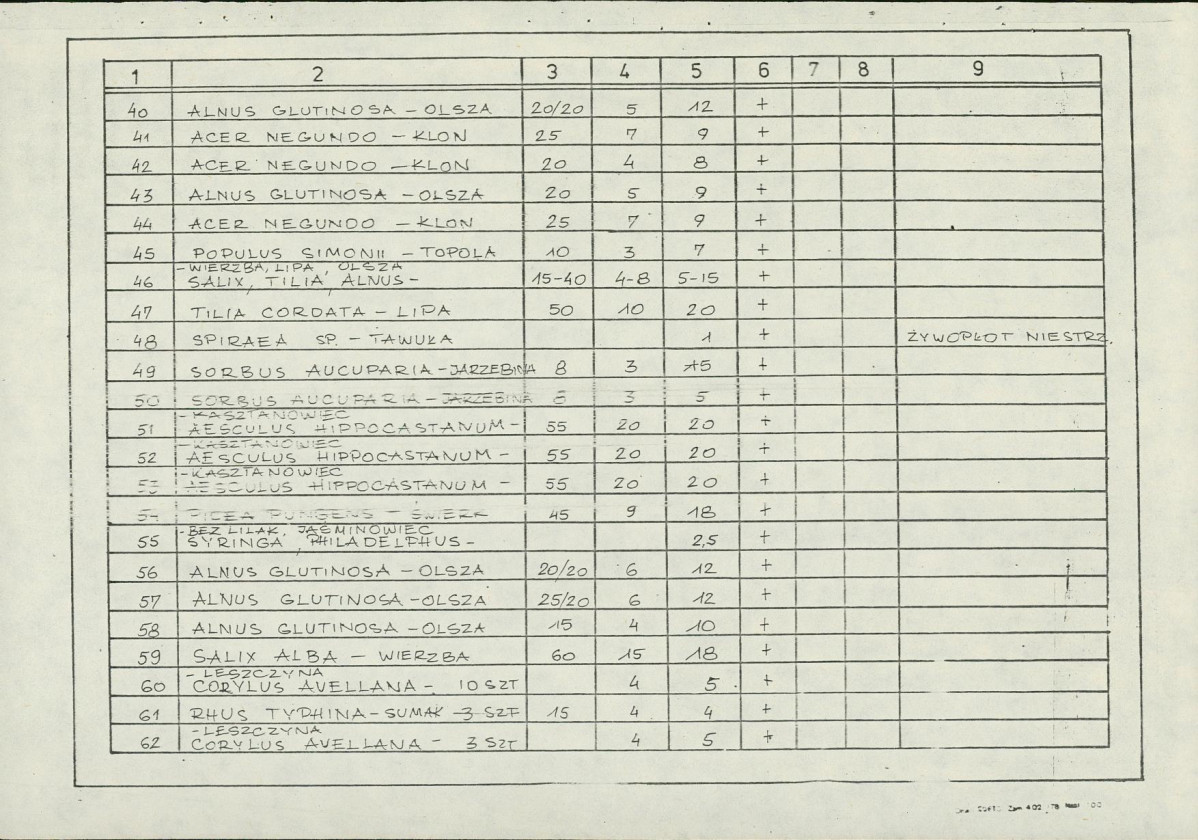 1 2 3 4 5 6 7 8 9
40 ALNUS GLUTINOSA – OLSZA 20/20 5 12 +
41 ACER NEGUNDO – KLON 25 7 9 +
42 ACER NEGUNDO – KLON 20 4 8 +
43 ALNUS GLUTINOSA – OLSZA 20 5 9 +
44 ACER NEGUNDO – KLON 25 7 9 +
45 POPULUS SIMONII – TOPOLA 10 3 7 +
– WIERZBA, LIPA, OLSZA
46 SALIX, TILIA, ALNUS – 15-40 4-8 5-15 +
47 TILIA CORDATA – LIPA 50 10 20 +
48 SPIRAEA SP. – TAWUŁA 1 + ŻYWOPŁOT NIESTRZ.
49 SORBUS AUCUPARIA – JARZEBINA 8 3 5 +
50 SORBUS AUCUPARIA – JARZEBINA 3 5 +
– KASZTANOWIEC
51 AESCULUS HIPPOCASTANUM – 55 20 20 +
– KASZTANOWIEC
52 AESCULUS HIPPOCASTANUM – 55 20 20 +
– KASZTANOWIEC
53 AESCULUS HIPPOCASTANUM – 55 20 20 +
54 PICEA PUNGENS – ŚWIERK 45 9 18 +
– BEZ LILAK, JAŚMINOWIEC
55 SYRINGA, PHILADELPHUS – 2,5 +
56 ALNUS GLUTINOSA – OLSZA 20/20 6 12 +
57 ALNUS GLUTINOSA – OLSZA 25/20 6 12 +
58 ALNUS GLUTINOSA – OLSZA 15 4 10 +
59 SALIX ALBA – WIERZBA 60 15 18 +
– LESZCZYNA
60 CORYLUS AVELLANA – 10 SZT 4 5 +
61 RHUS TYPHINA – SUMAK – 3 SZT 15 4 4 +
– LESZCZYNA
62 CORYLUS AVELLANA – 3 SZT 4 5 +